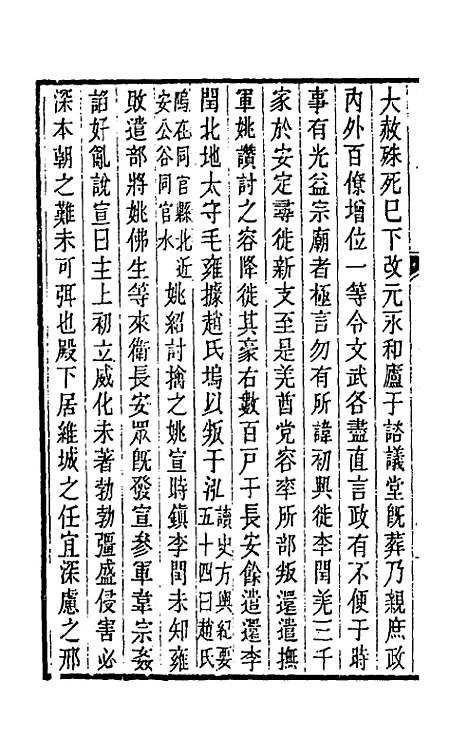 大赦殊死已下改元永和廬于諮議堂旣葬乃親庶政
內外百僚增位一等令文武各盡直言政有不便于時
事有光益宗廟者極言勿有所諱初興徙李閏羌三千
家於安定尋徙新支至是羌酋党容率所部叛還遣撫
軍姚讚討之容降徙其豪右數百戶于長安餘遣還李
閏北地太守毛雍據趙氏塢以叛于泓讀史方輿紀要五十四曰趙氏
塢在同官縣北近安公谷同官水姚紹討擒之姚宣時鎮李閏未知雍
敗遣部將姚佛生等來衛長安眾旣發宣參軍韋宗姦
諂好亂說宣曰主上初立威化未著勃勃彊盛侵害必
深本朝之難未可弭也殿下居維城之任宜深慮之邢